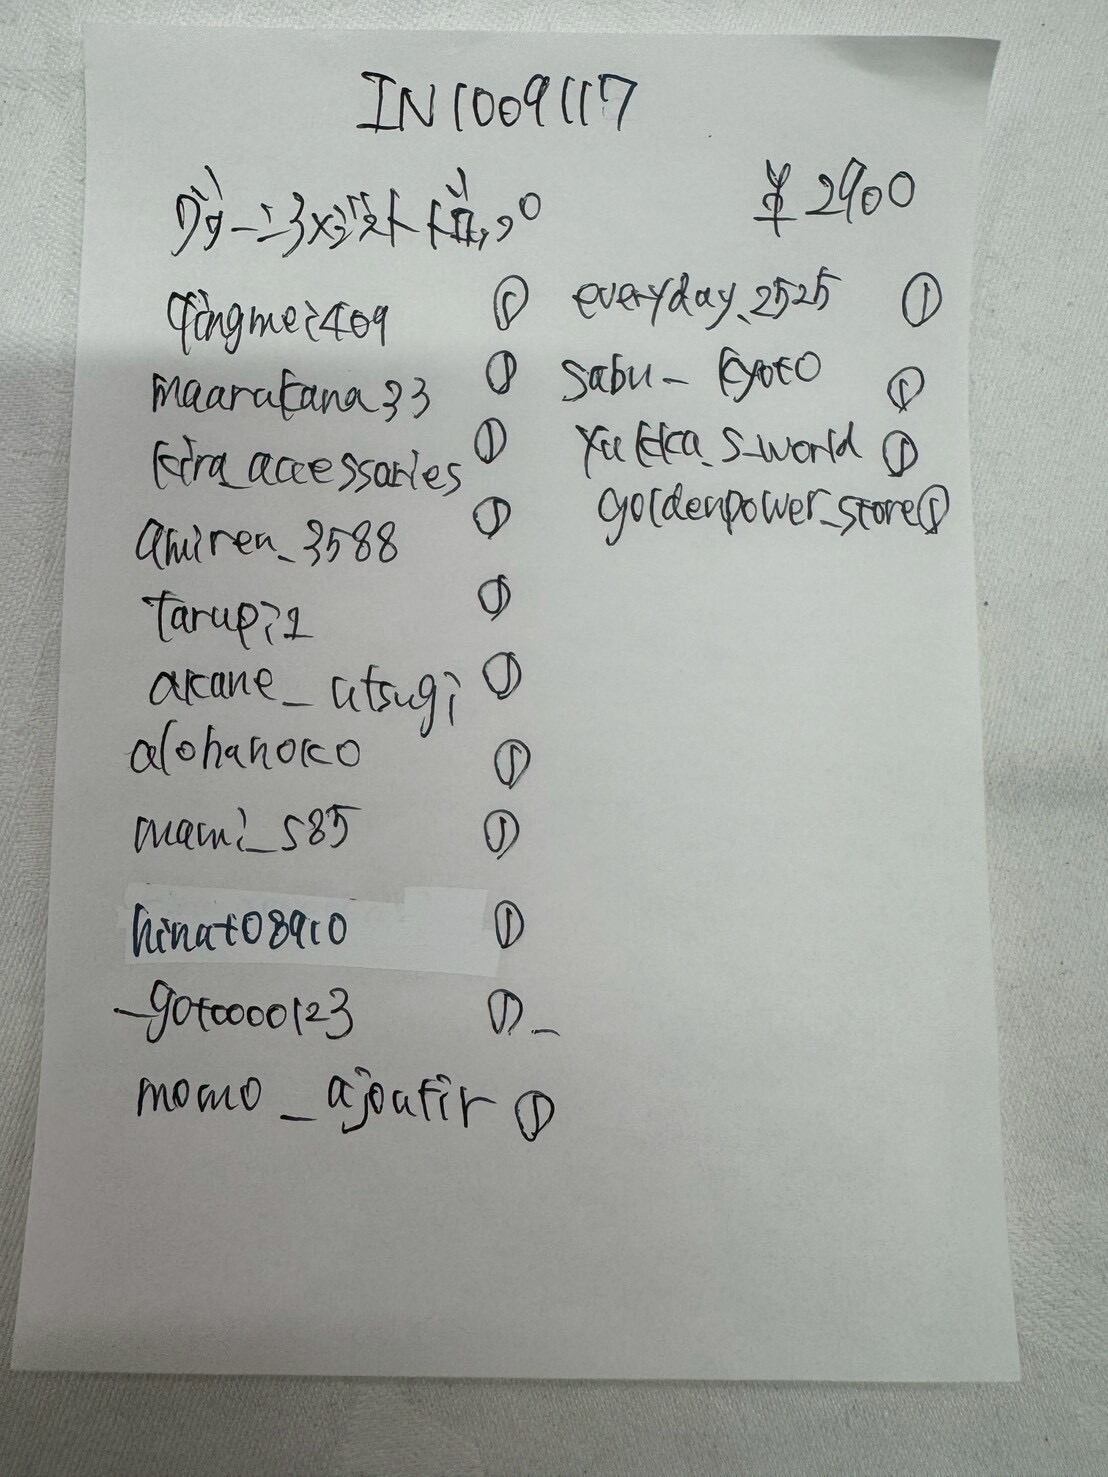 IN1009117
¥2900
qingmei409 ①
maarukana33 ①
kira_accessories ①
amiren_3588 ①
tarupi1 ①
akane_utsugi ①
alohanoko ①
mami_s85 ①
hinat08910 ①
_gotoooo123 ①_
momo_ajoutir ①
everyday_2525 ①
sabu_kyoto ①
yukka_s_world ①
goldenpower_store①